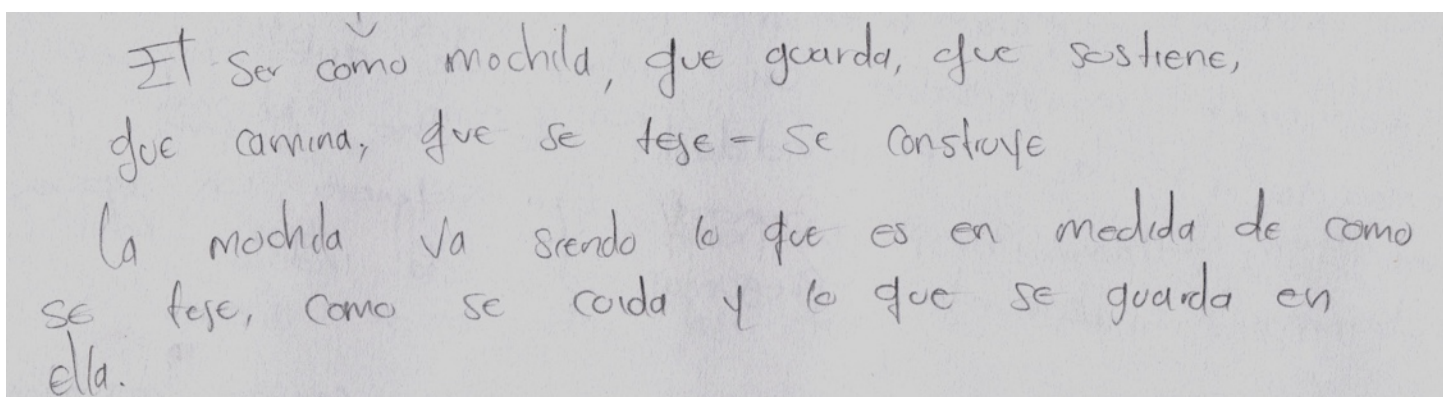 El ser como mochila, que guarda, que sostiene,
que camina, que se teje - se construye
La mochila va siendo lo que es en medida de como
se teje, como se cuida y lo que se guarda en
ella.